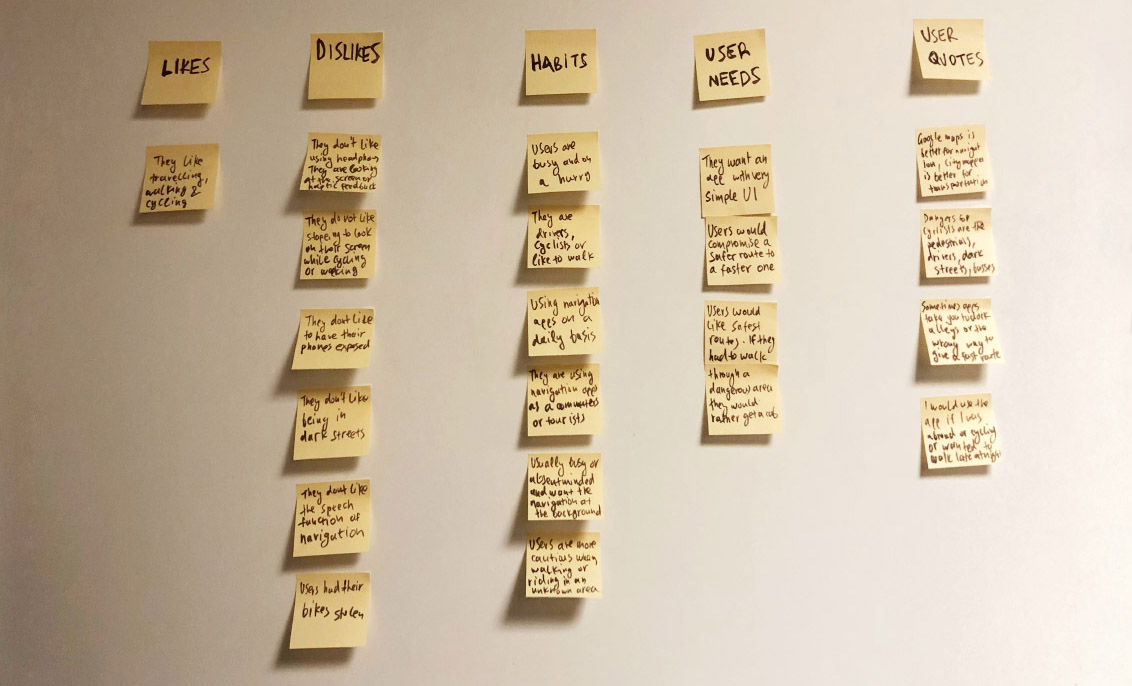 LIKES
They like
travelling,
walking &
cycling
DISLIKES
They don't like
using headphones
They are looking
at the screen or
haptic feedback
They do not like
stoping to look
on their screen
while cycling
or walking
They dont like
to have their
phones exposed
They don't like
being in
dark streets
They dont like
the speech
function of
navigation
Users had their
bikes stolen
HABITS
Users are
busy and on
a hurry
They are
drivers,
cyclists or
like to walk
Using navigation
apps on a
daily basis
They are using
navigation apps
as a commuters
or tourists
Usually busy or
absentminded
and want the
navigation at
the background
Users are more
cautious when
walking or
riding in an
unknown area
USER
NEEDS
They want an
app with very
simple UI
Users would
compromise a
safer route to
a faster one
Users would
like safest
routes. If they
had to walk
through a
dangerous area
they would
rather get a cab
USER
QUOTES
Google maps is
better for navigat
ion, citymapper
is better for
transportation
Dangers for
cyclists are the
pedestrians,
drivers, dark
streets, busses
Sometimes apps
take you to dark
alleys or the
wrong way to
give a fast route
I would use the
app if I was
abroad or cycling
or wanted to
walk late at night